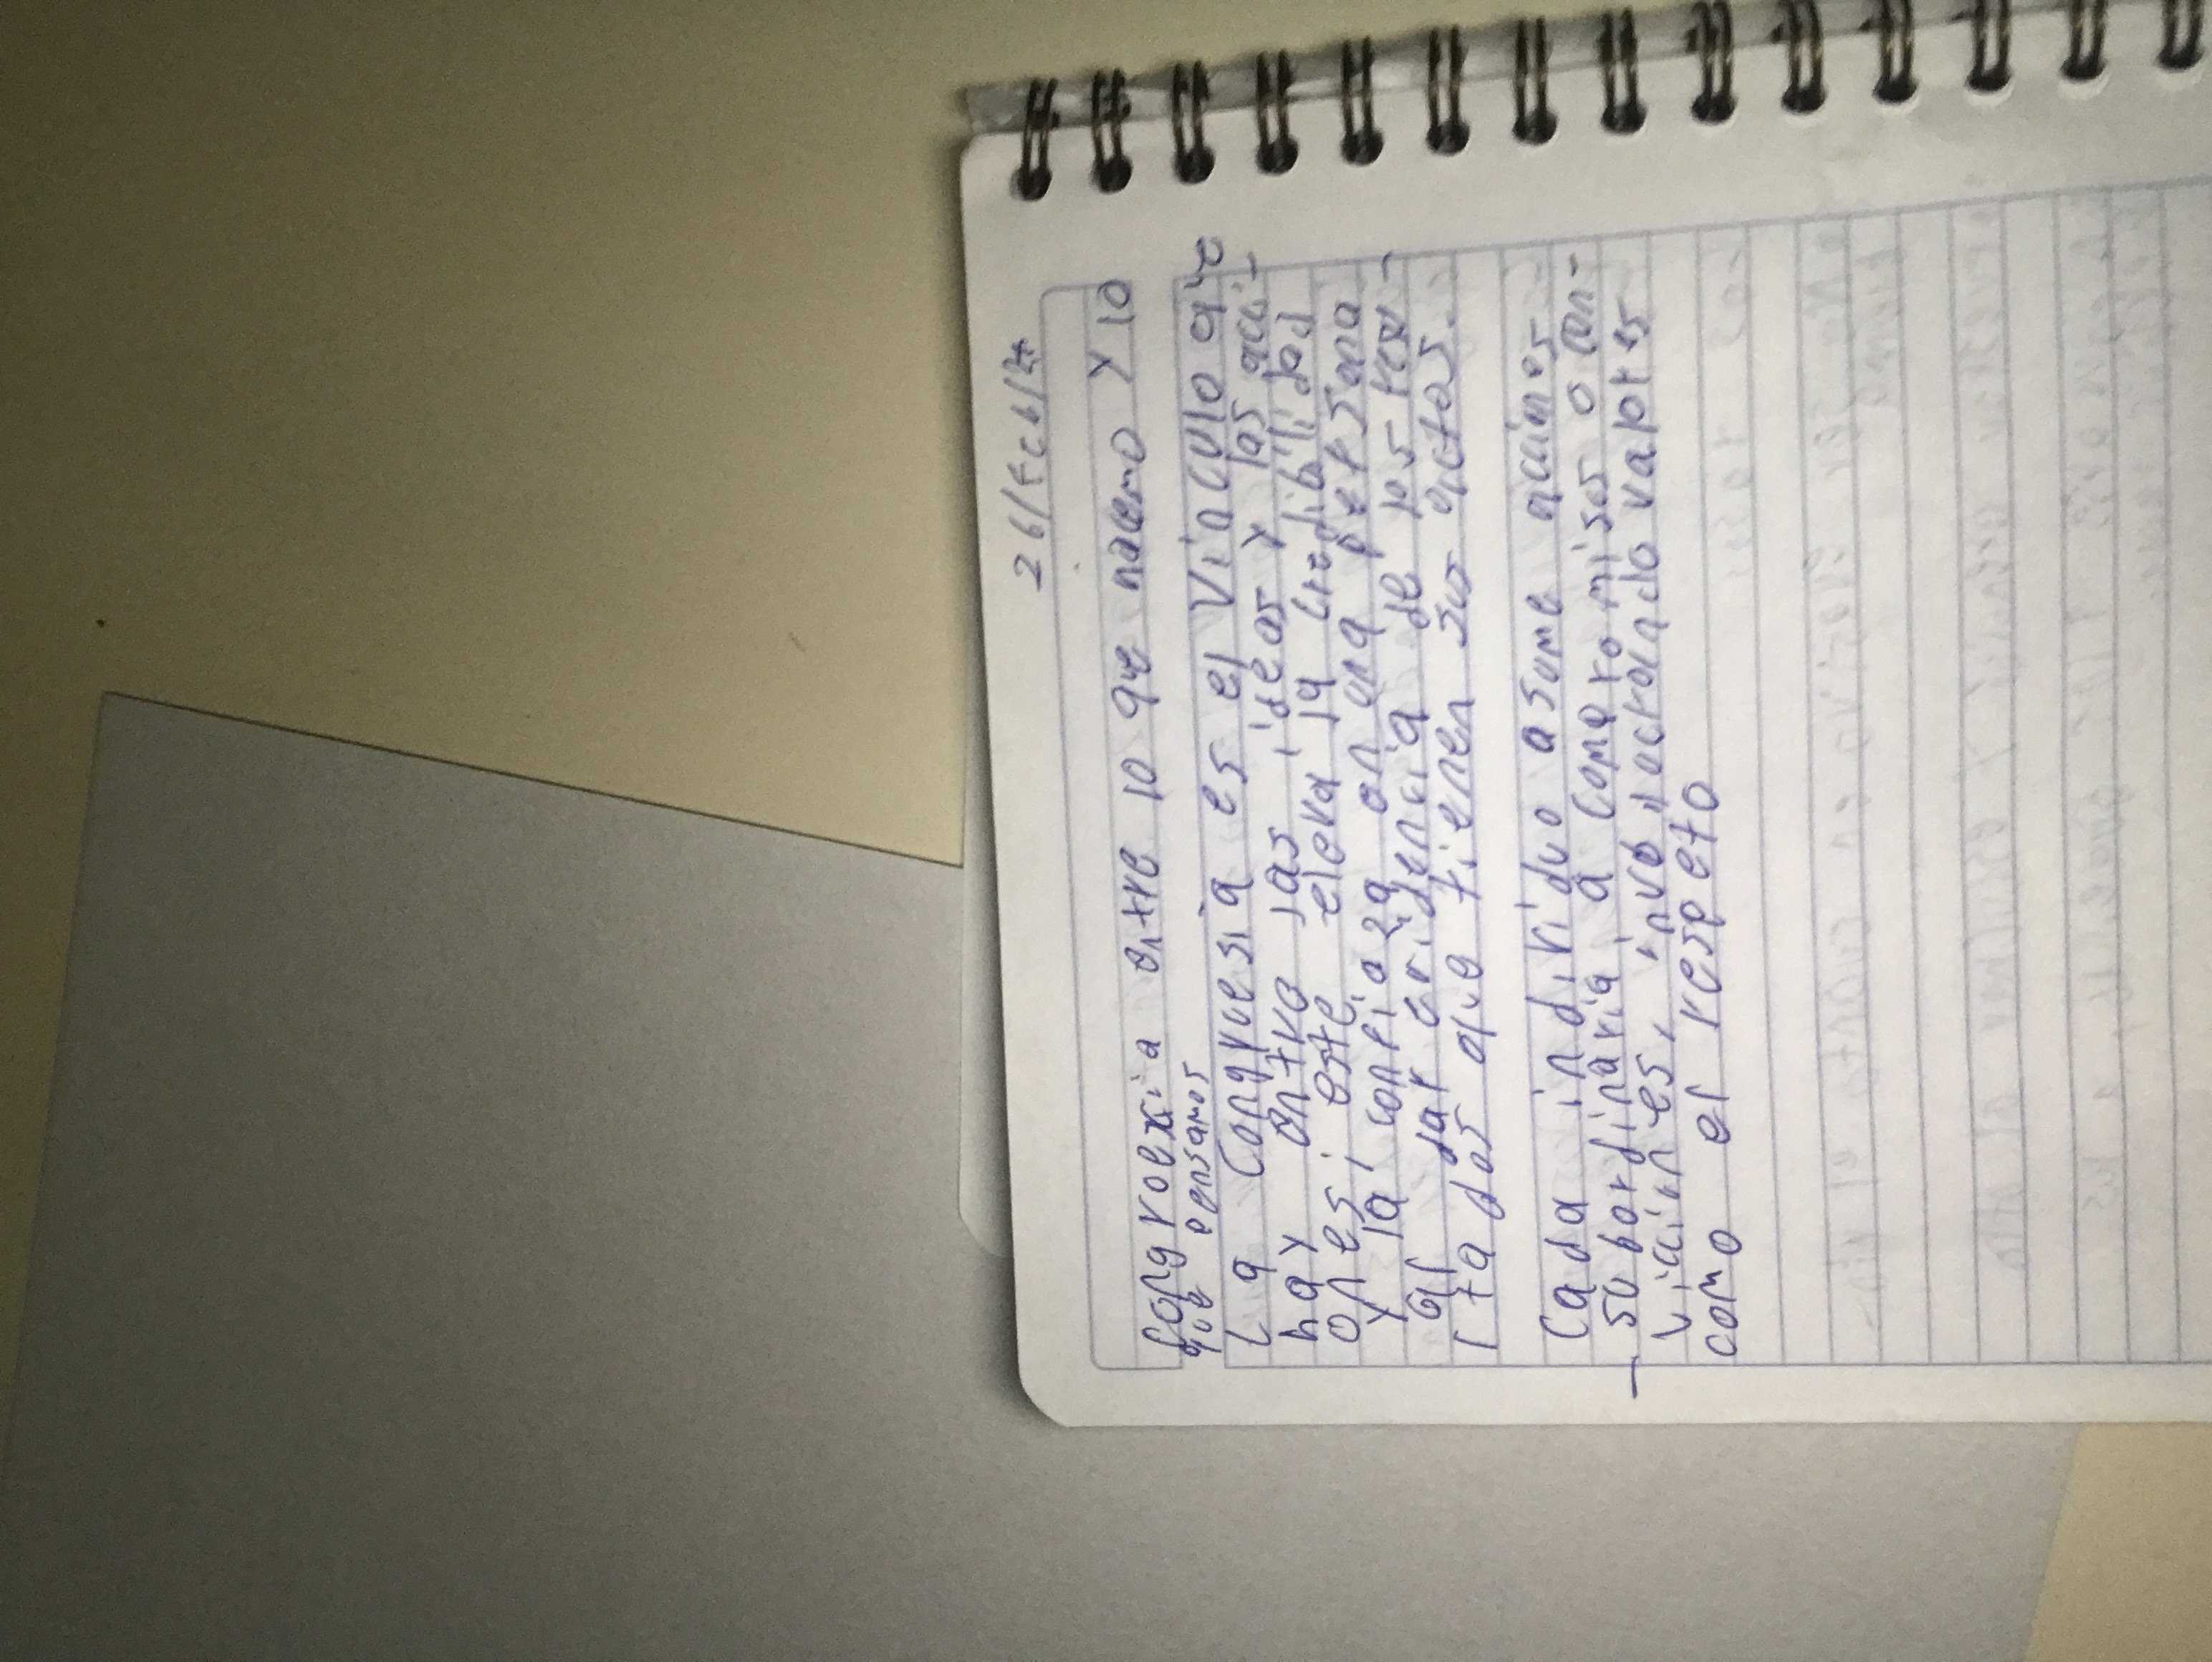 26/Feb/24
Congruexia entre lo que hacemo y lo
que pensamos
La Congruesia es el Viaculo que
hay entre las ideas y las acci-
ones; este eleva la credibilidad
y la confiaza en una persona
al dar evidencia de los resu-
ltados que tienen sus actos.
Cada individuo asume acciones
subordinaria, a compromisos o con-
viciones, involucrando valores
como el respeto